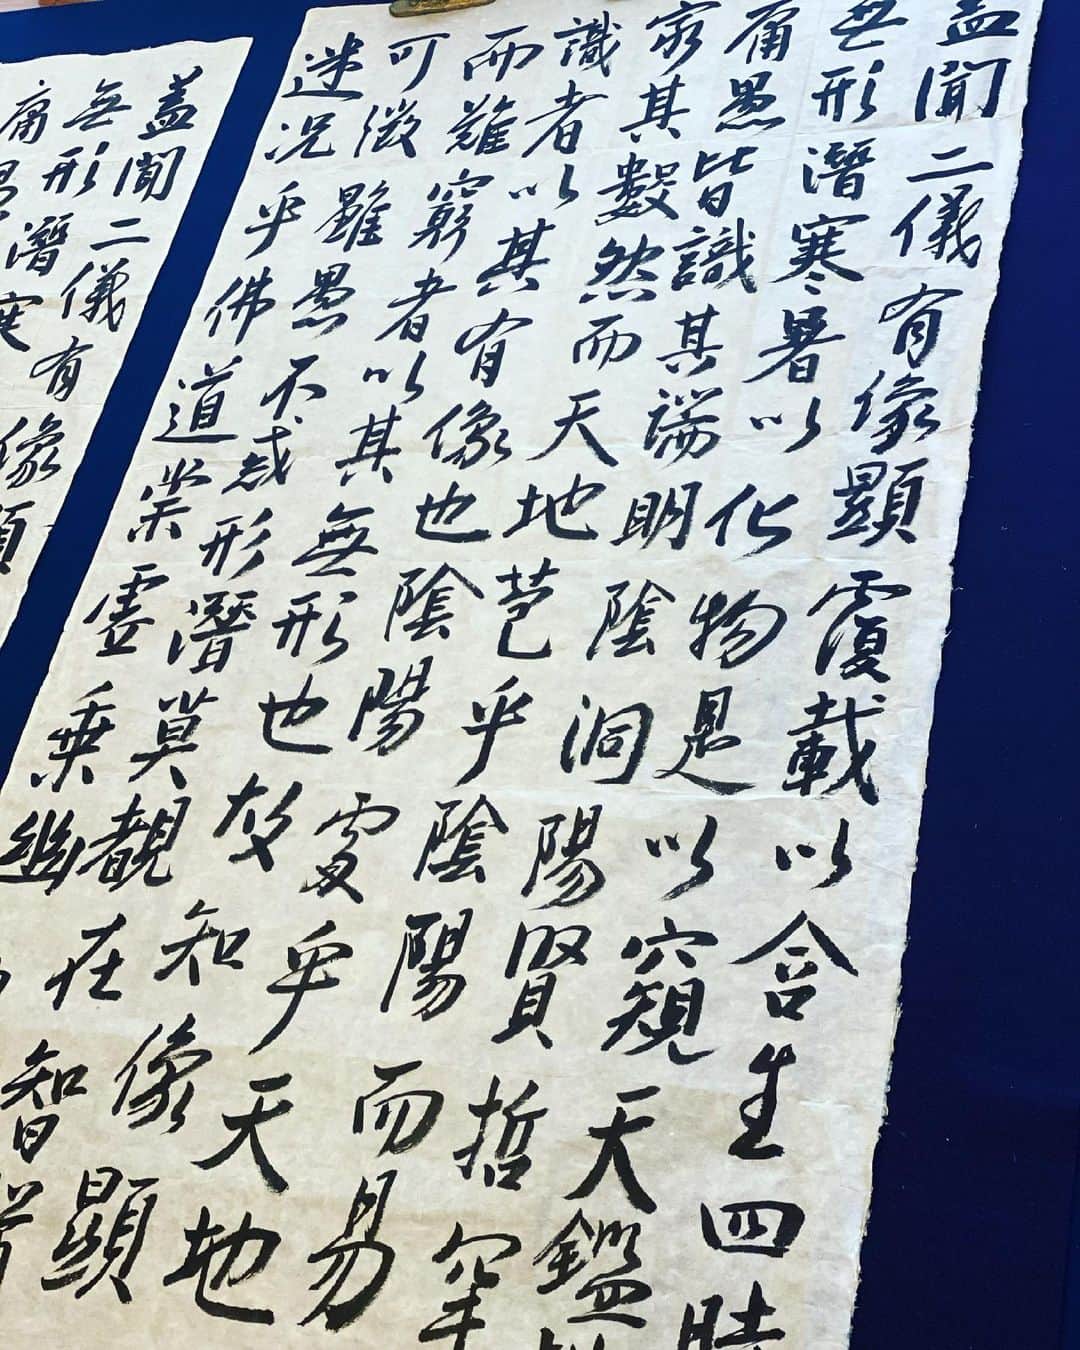 盖聞二儀有像顯覆載以含生四時
無形潛寒暑以化物是以窺天鑑
庸愚皆識其端明陰洞陽賢哲罕
窮其數然而天地苞乎陰陽而易
識者以其有像也陰陽處乎天地
而難窮者以其無形也故知像顯
可徵雖愚不惑形潛莫覩在智
迷況乎佛道崇虛乘幽
盖聞二儀有像顯
無形潛寒
庸愚